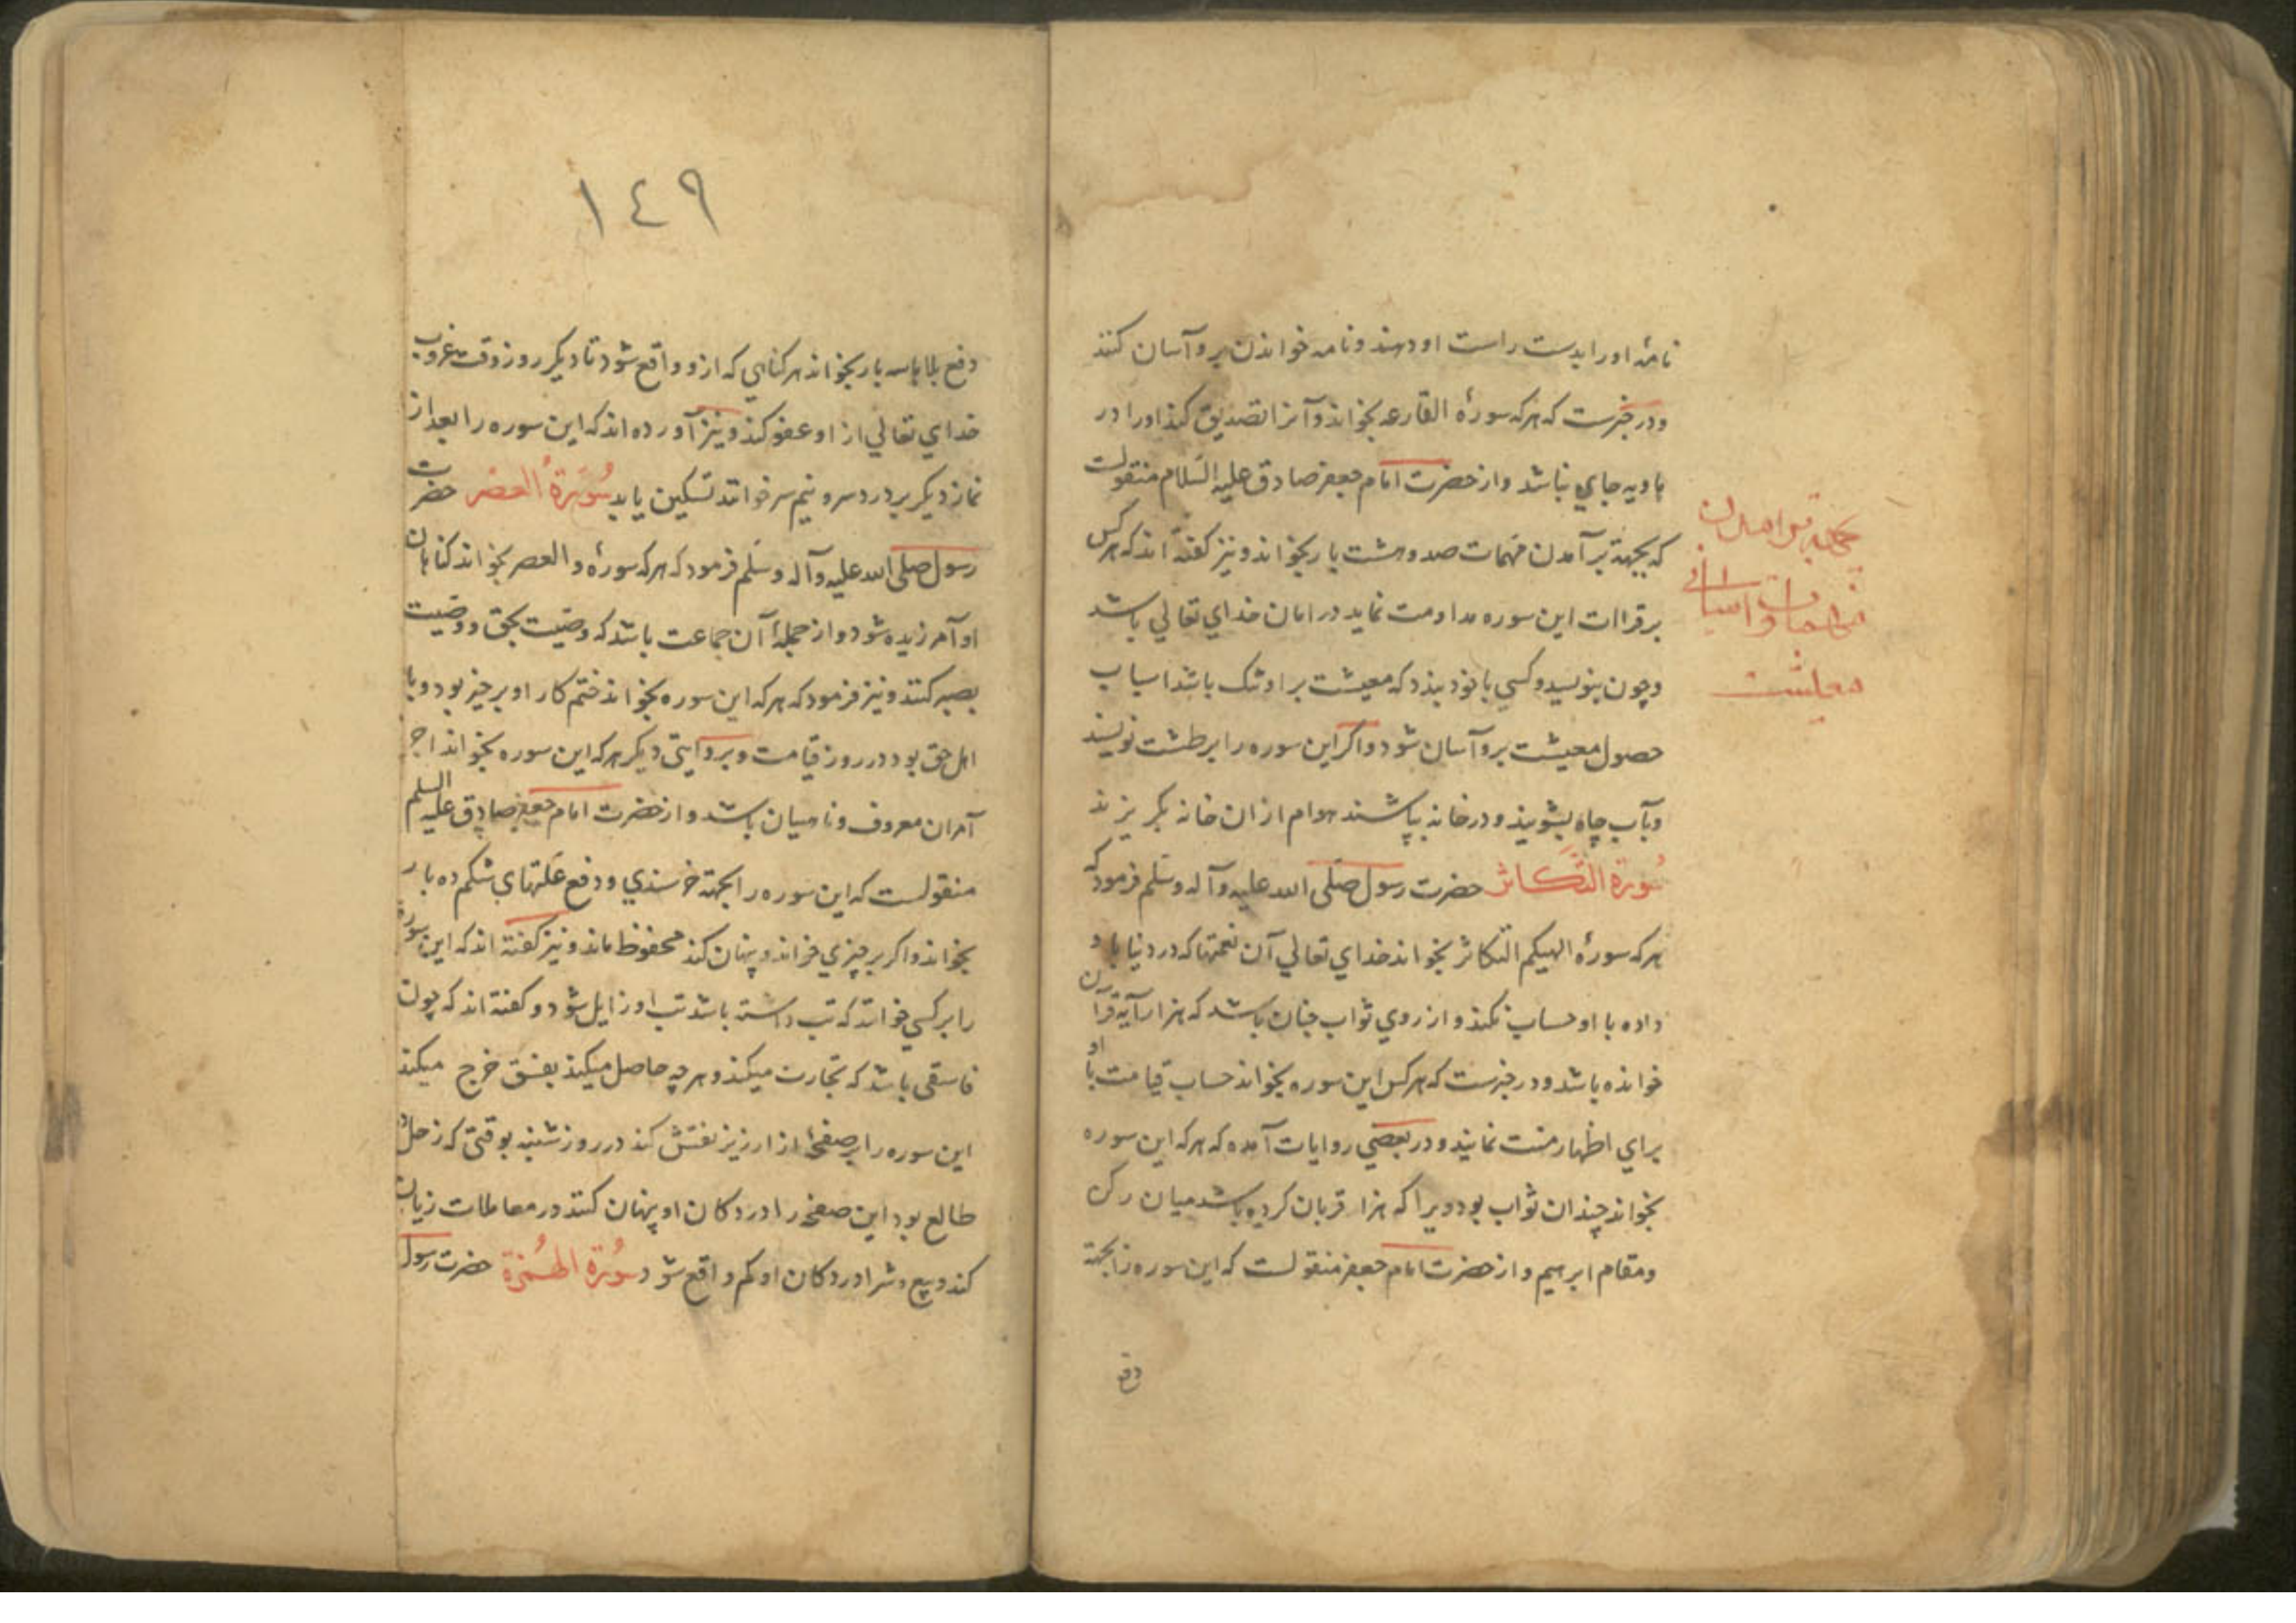 نامهٔ او را بدست راست او دهند و نامه خواندن برو آسان کنند
و در خبرست که هرکه سورهٔ القارعه بخواند و آنرا تصدیق کند او را در
هاویه جای نباشد و از حضرت امام جعفر صادق علیه السّلام منقولست
که بجهة برآمدن مهمات صد و هشت بار بخواند و نیز کفته اند که هرکس
برقراات این سوره مداومت نماید در امان خدای تعالی باشد
و چون بنویسد و کسی با خود بندد که معیشت بر او تنک باشد اسباب
حصول معیشت برو آسان شود و اکر این سوره را بر طشت نویسند
و بآب چاه بشویند و در خانه بپاشند هوام از ان خانه بکریزند
سُورة التَّکاثر حضرت رسول صلّی الله علیه و آله وسلّم فرمود که
هرکه سورهٔ الهیکم التکاثر بخواند خدای تعالی آن نعمتها که در دنیا باو
داده با او حساب نکند و از روی ثواب چنان باشد که هزار آیه قران
خوانده باشد و در خبرست که هرکس این سوره بخواند حساب قیامت با او
برای اظهار منت نمایند و در بعضی روایات آمده که هرکه این سوره
بخواند چندان ثواب بود ویرا که هزار قربان کرده باشد میان رکن
و مقام ابرهیم و از حضرت امام جعفر منقولست که این سوره را بجهة
دفع
معیشت
١٤٩
دفع بلاها سه بار بخواند هر کناهی که ازو واقع شود تا دیکر روز وقت غروب
خدای تعالی از او عفو کند و نیز آورده اند که این سوره را بعد از
نماز دیکر بر درد سر و نیم سر خوانند تسکین یابد سُورَةُ العصْر حضرت
رسول صلی الله علیه و آله وسلّم فرمود که هرکه سورهٔ و العصر بخواند کناهان
او آمرزیده شود و از جملهٔ آن جماعت باشد که وصّیت بحق و وصّیت
بصبر کنند و نیز فرمود که هرکه این سوره بخواند ختم کار او بر خیر بود و با
اهل حق بود در روز قیامت و بروایتی دیکر هرکه این سوره بخواند اجر
آمران معروف و ناهیان باشد و از حضرت امام جعفر صادق علیه السلم
منقولست که این سوره را بجهة خرسندی و دفع علّتهای شکم ده بار
بخواند و اکر بر چیزی خواند و پنهان کند محفوظ ماند و نیز کفته اند که این سوره
را بر کسی خوانند که تب داشته باشد تب او زایل شود و کفته اند که چون
فاسقی باشد که تجارت میکند و هر چه حاصل میکند بفسق خرج میکند
این سوره را بر صفحهٔ از ارزیز نقش کند در روز شنبه بوقتی که زحل در
طالع بود این صفحه را در دکان او پنهان کنند در معاملات زیان
کند و بیع و شرا در دکان او کم واقع شود سُورَة الهُمَزة حضرت رسول